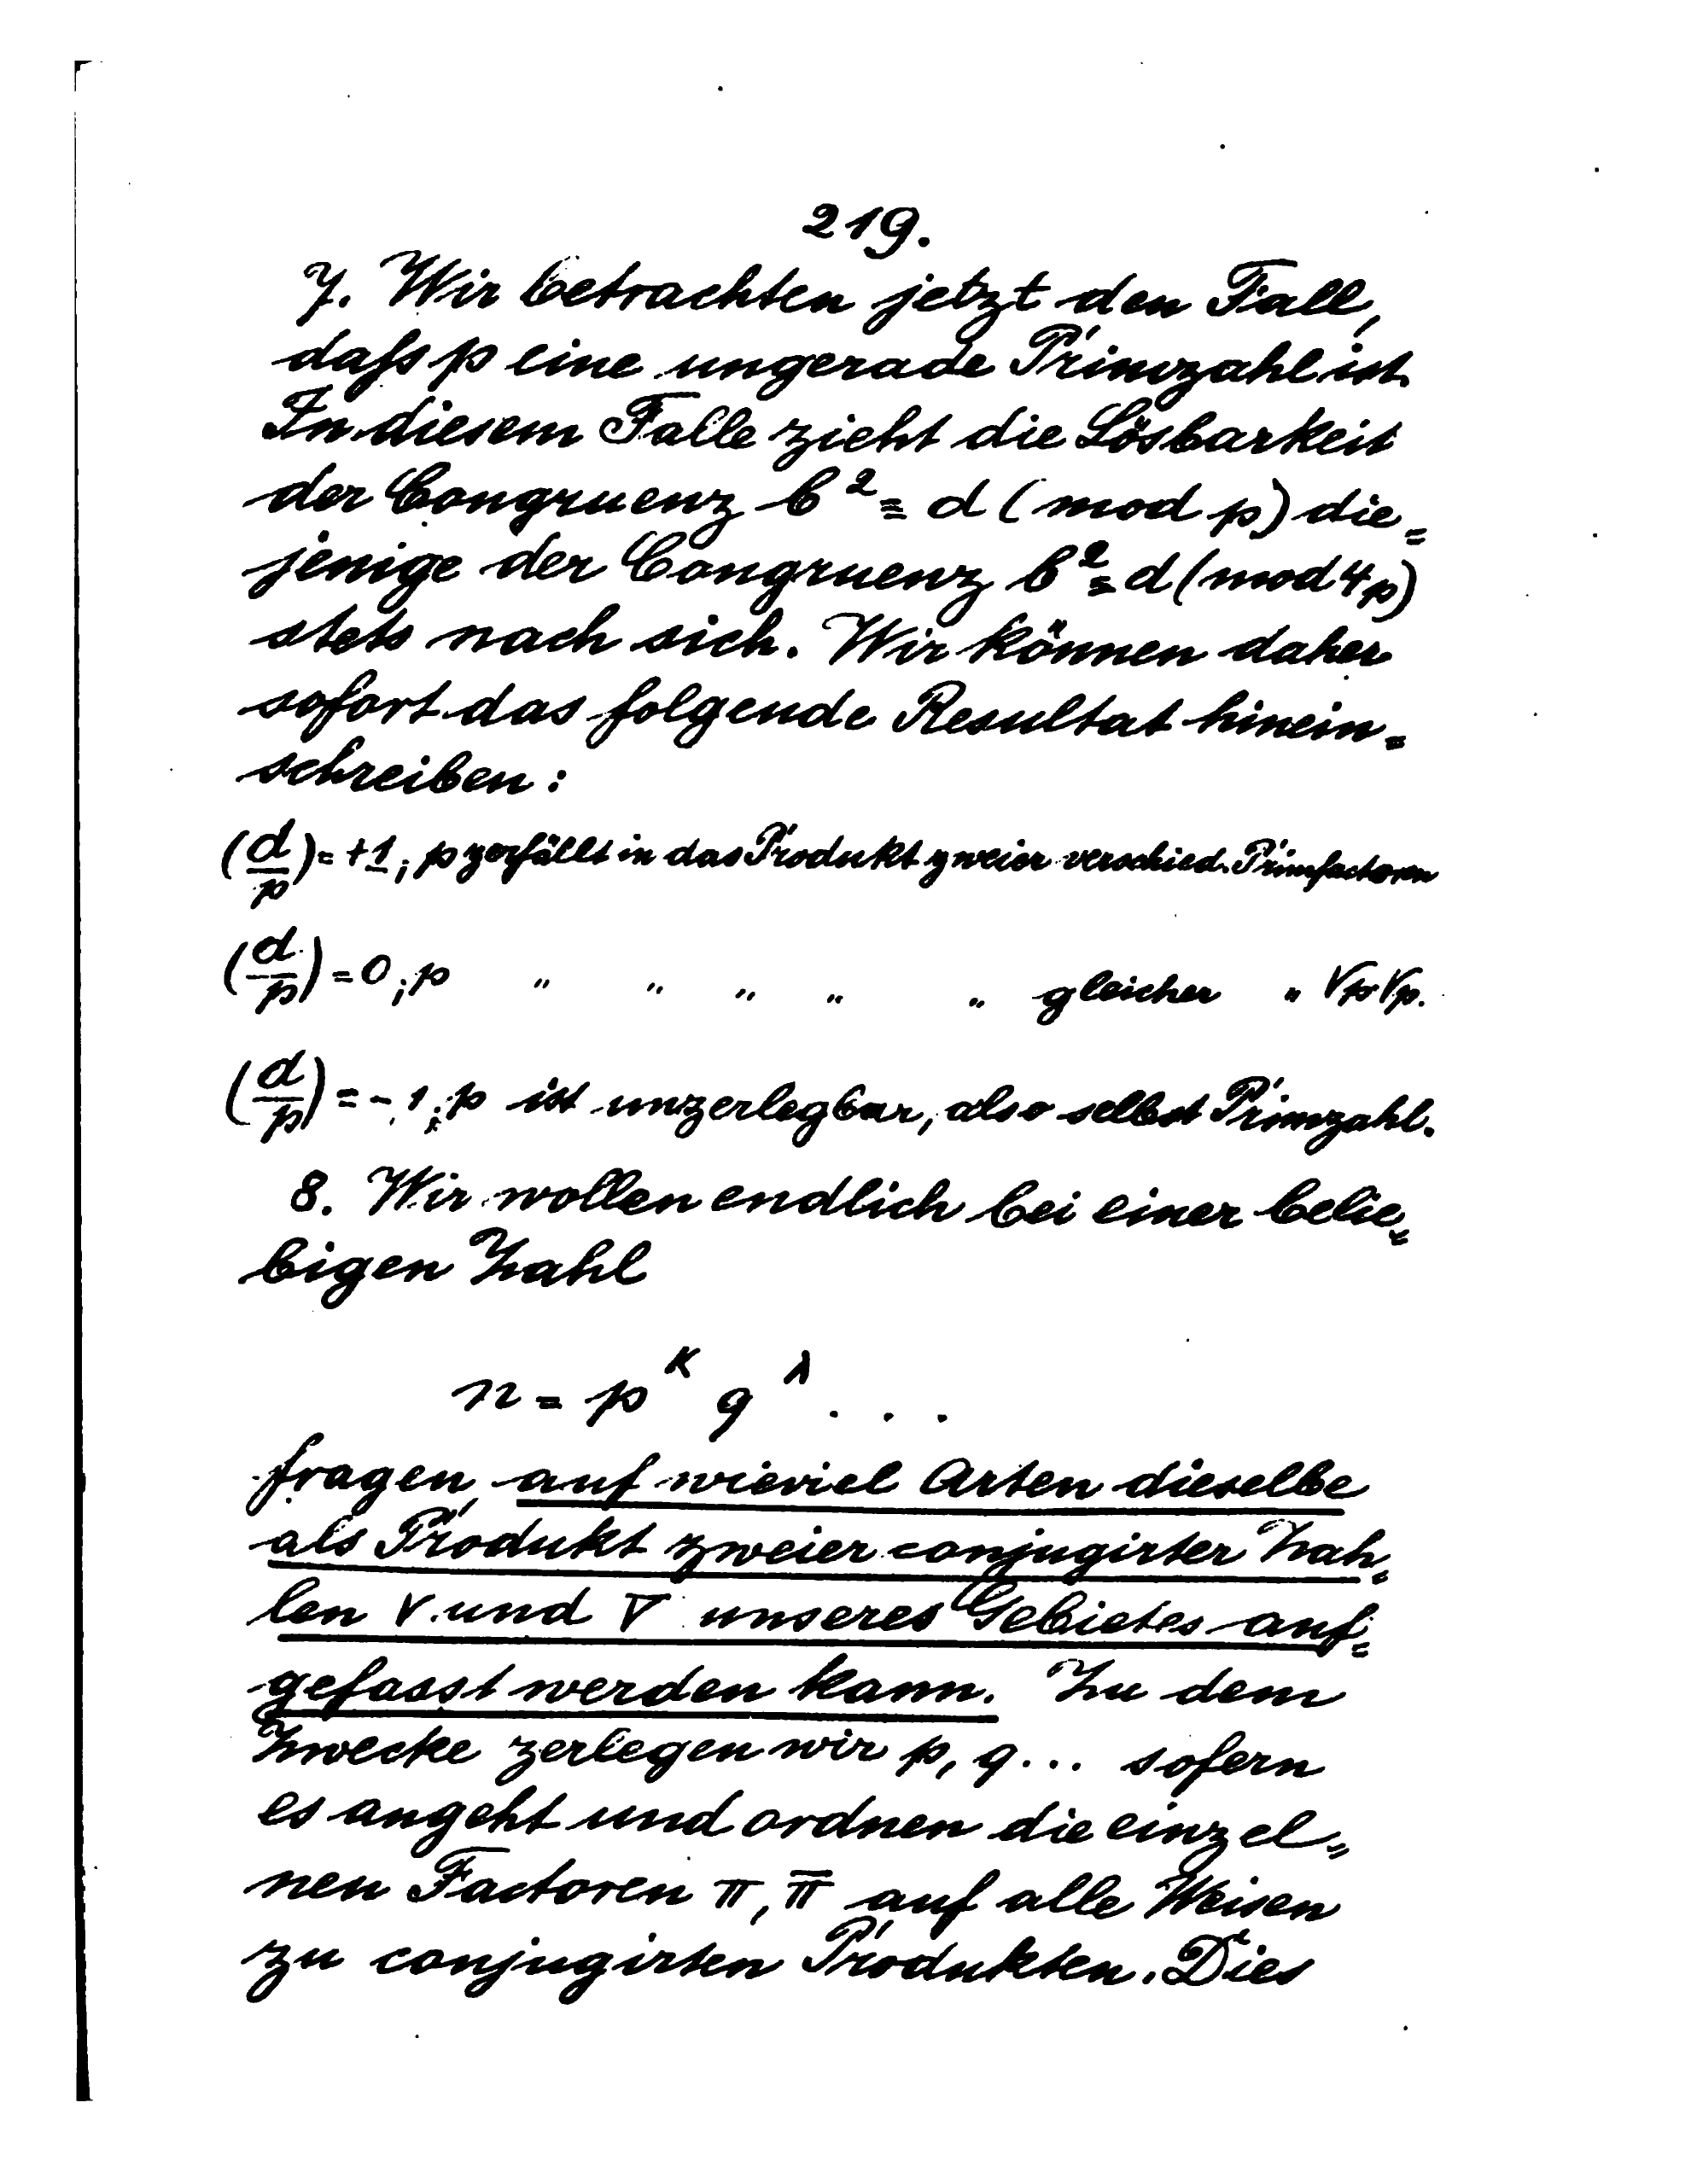 219.
7. Wir betrachten jetzt den Fall,
dafs p eine ungerade Primzahl ist.
In diesem Falle zieht die Lösbarkeit
der Congruenz b² ≡ d (mod p) die=
jenige der Congruenz b² ≡ d (mod 4p)
stets nach sich. Wir können daher
sofort das folgende Resultat hinein=
schreiben:
(d/p) = +1; p zerfällt in das Produkt zweier verschied. Primfactoren
(d/p) = 0; p " " " " " gleicher " √p √p.
(d/p) = -1; p ist unzerlegbar, also selbst Primzahl.
8. Wir wollen endlich bei einer belie=
bigen Zahl
n = p^κ q^λ . . .
fragen auf wieviel Arten dieselbe
als Produkt zweier conjugirter Zah=
len ν und ν̅ unseres Gebietes auf=
gefasst werden kann. Zu dem
Zwecke zerlegen wir p, q... sofern
es angeht und ordnen die einzel=
nen Factoren π, π̅ auf alle Weisen
zu conjugirten Produkten. Dies